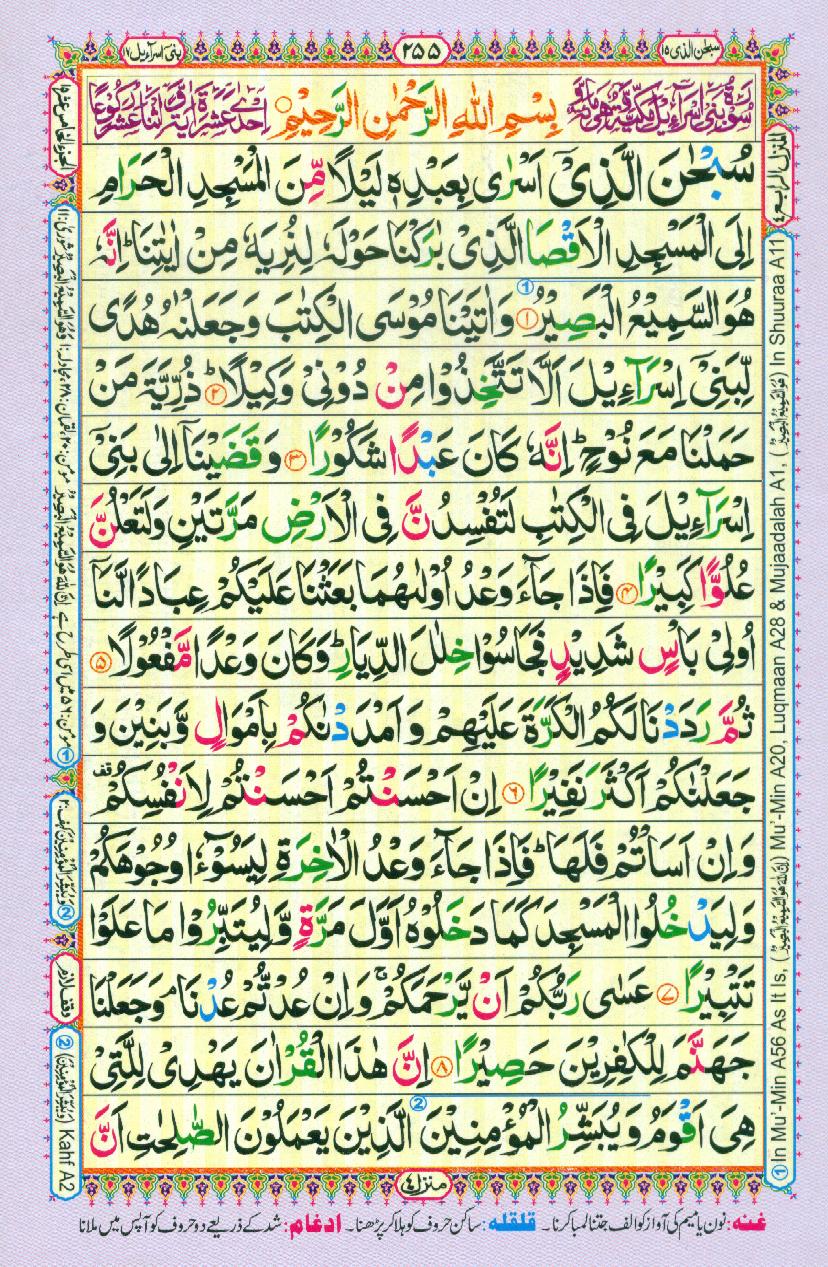 سبحن الذی ۱۵
۲۵۵
بنی اسرآءیل ۱۷
بِسْمِ اللهِ الرَّحْمٰنِ الرَّحِيْمِ
سُبْحٰنَ الَّذِیْۤ اَسْرٰی بِعَبْدِهٖ لَيْلًا مِّنَ الْمَسْجِدِ الْحَرَامِ
اِلَی الْمَسْجِدِ الْاَقْصَا الَّذِیْ بٰرَكْنَا حَوْلَهٗ لِنُرِيَهٗ مِنْ اٰيٰتِنَا ؕ اِنَّهٗ
هُوَ السَّمِيْعُ الْبَصِيْرُ ۱ وَاٰتَيْنَا مُوْسَی الْكِتٰبَ وَجَعَلْنٰهُ هُدًی
لِّبَنِیْۤ اِسْرَآءِيْلَ اَلَّا تَتَّخِذُوْا مِنْ دُوْنِیْ وَكِيْلًا ؕ ۲ ذُرِّيَّةَ مَنْ
حَمَلْنَا مَعَ نُوْحٍ ؕ اِنَّهٗ كَانَ عَبْدًا شَكُوْرًا ۳ وَقَضَيْنَاۤ اِلٰی بَنِیْۤ
اِسْرَآءِيْلَ فِی الْكِتٰبِ لَتُفْسِدُنَّ فِی الْاَرْضِ مَرَّتَيْنِ وَلَتَعْلُنَّ
عُلُوًّا كَبِيْرًا ۴ فَاِذَا جَآءَ وَعْدُ اُوْلٰىهُمَا بَعَثْنَا عَلَيْكُمْ عِبَادًا لَّنَاۤ
اُولِیْ بَاْسٍ شَدِيْدٍ فَجَاسُوْا خِلٰلَ الدِّيَارِ ؕ وَكَانَ وَعْدًا مَّفْعُوْلًا ۵
ثُمَّ رَدَدْنَا لَكُمُ الْكَرَّةَ عَلَيْهِمْ وَاَمْدَدْنٰكُمْ بِاَمْوَالٍ وَّبَنِيْنَ وَ
جَعَلْنٰكُمْ اَكْثَرَ نَفِيْرًا ۶ اِنْ اَحْسَنْتُمْ اَحْسَنْتُمْ لِاَنْفُسِكُمْ قف
وَاِنْ اَسَاْتُمْ فَلَهَا ؕ فَاِذَا جَآءَ وَعْدُ الْاٰخِرَةِ لِيَسُوْٓءٗا وُجُوْهَكُمْ
وَلِيَدْخُلُوا الْمَسْجِدَ كَمَا دَخَلُوْهُ اَوَّلَ مَرَّةٍ وَّلِيُتَبِّرُوْا مَا عَلَوْا
تَتْبِيْرًا ۷ عَسٰی رَبُّكُمْ اَنْ يَّرْحَمَكُمْ ۚ وَاِنْ عُدْتُّمْ عُدْنَا ۘ وَجَعَلْنَا
جَهَنَّمَ لِلْكٰفِرِيْنَ حَصِيْرًا ۸ اِنَّ هٰذَا الْقُرْاٰنَ يَهْدِیْ لِلَّتِیْ
هِیَ اَقْوَمُ وَيُبَشِّرُ الْمُؤْمِنِيْنَ الَّذِيْنَ يَعْمَلُوْنَ الصّٰلِحٰتِ اَنَّ
منزل ۴
غنه: نون یا میم کی آواز کو الف جتنا لمبا کرنا۔ قلقله: ساکن حروف کو ہلا کر پڑھنا۔ ادغام: شد کے ذریعے دو حروف کو آپس میں ملانا
① In Mu'-Min A56 As It Is, Mu'-Min A20, Luqmaan A28 & Mujaadalah A1, In Shuuraa A11
② Kahf A2
وقف لازم